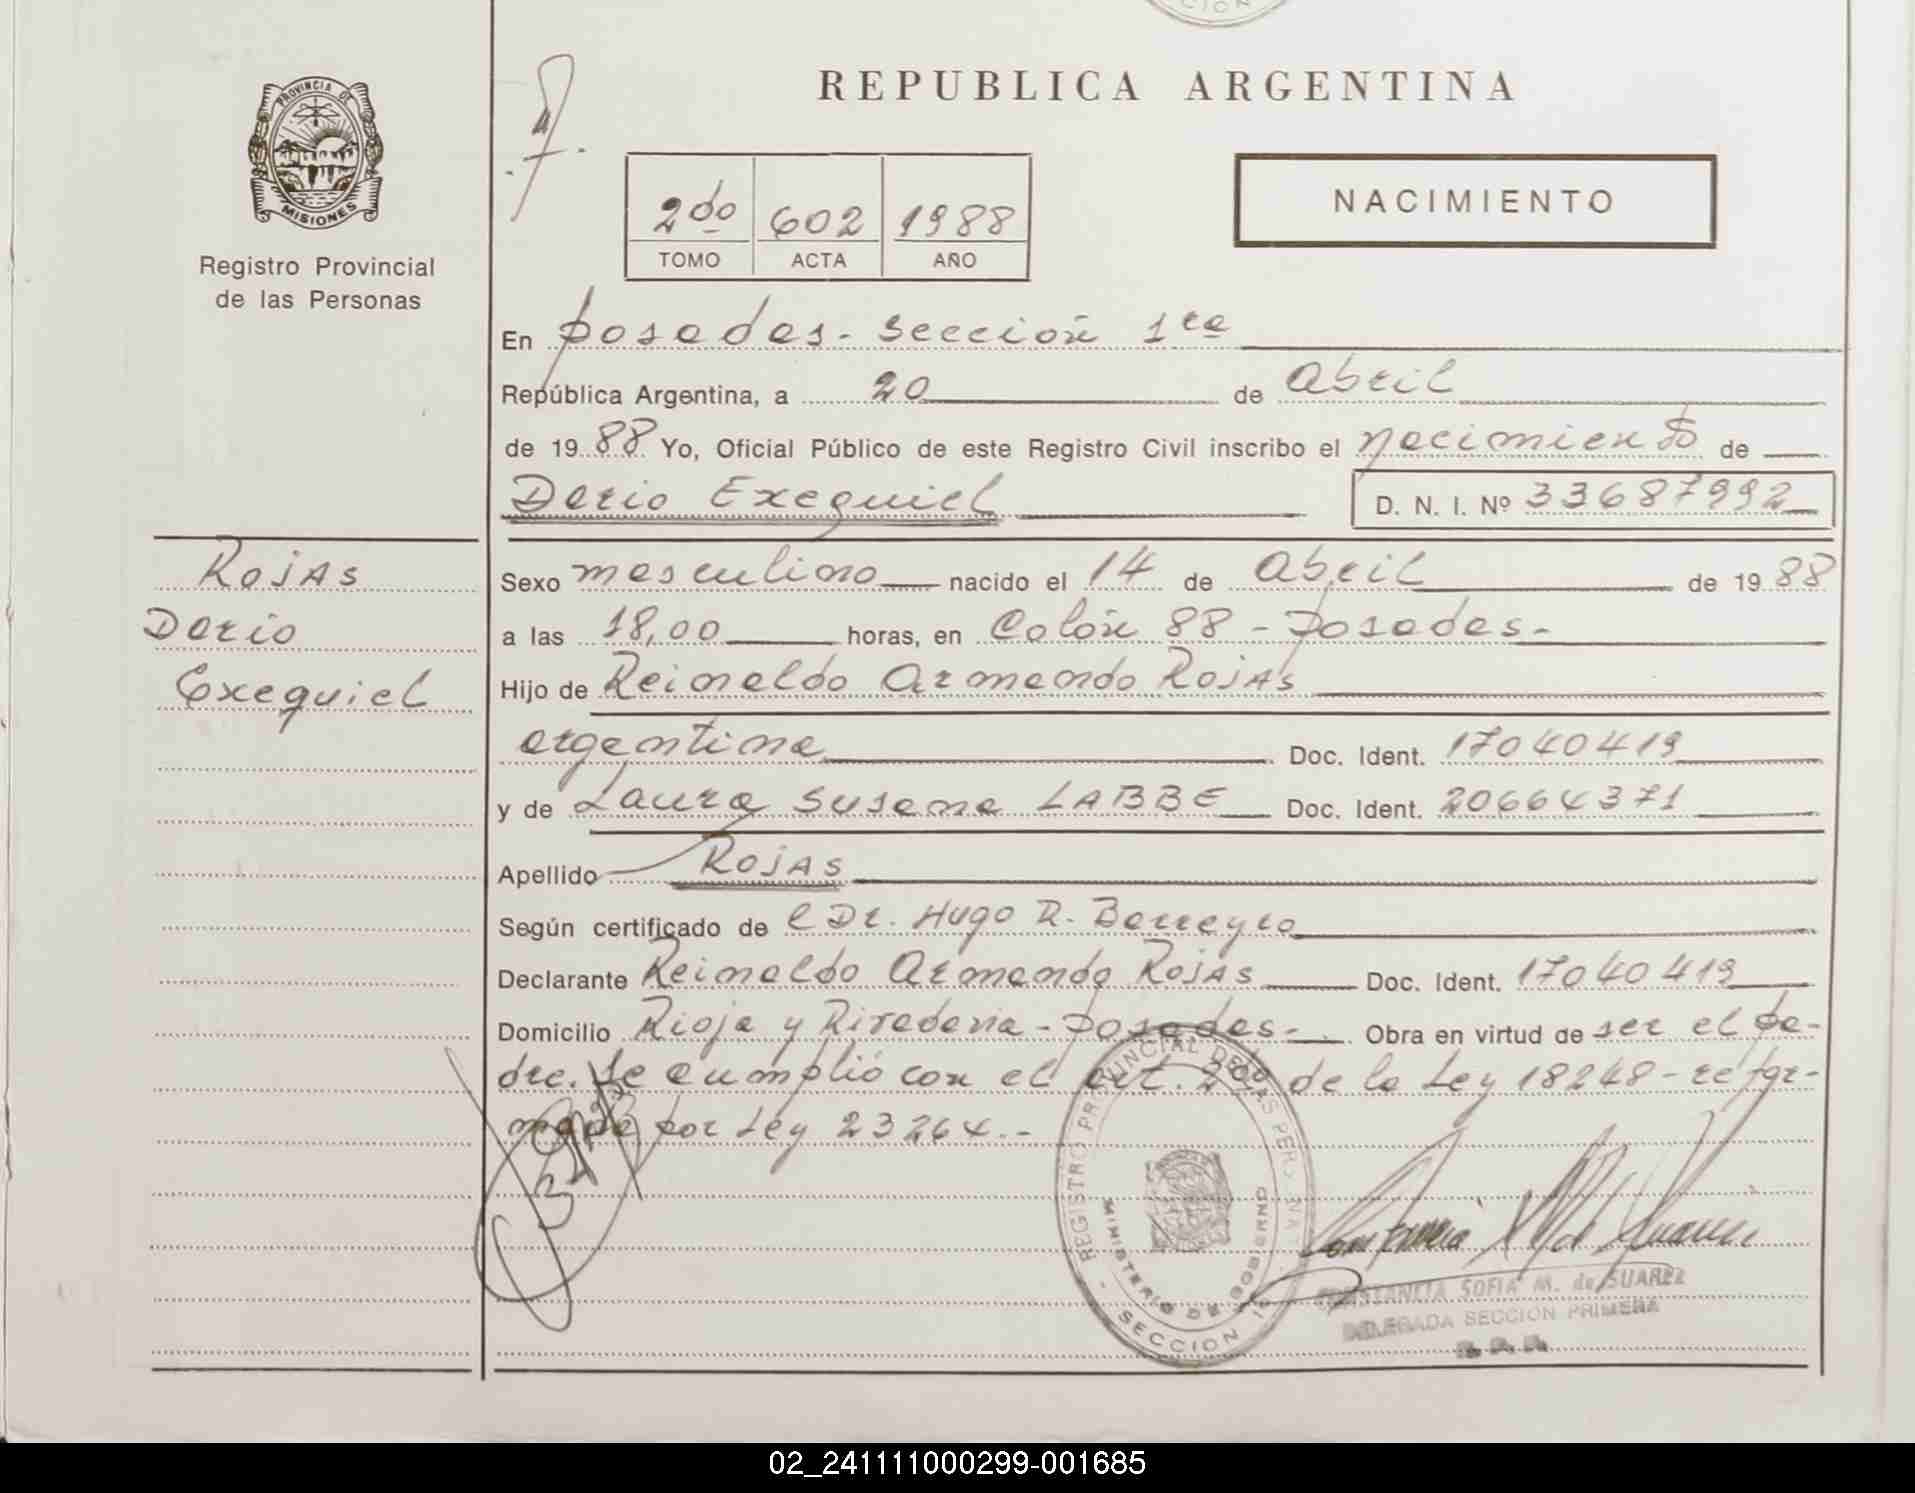 CION
REPUBLICA ARGENTINA
PROVINCIA DE
MISIONES
Registro Provincial
de las Personas
2do 602 1988
TOMO ACTA AÑO
NACIMIENTO
En Posadas - Sección 1ra
República Argentina, a 20 de Abril
de 1988 Yo, Oficial Público de este Registro Civil inscribo el nacimiento de
Dario Exequiel D. N. I. Nº 33687992
Rojas
Dario
Exequiel
Sexo masculino nacido el 14 de Abril de 1988
a las 18,00 horas, en Colón 88 - Posadas -
Hijo de Reinaldo Armando Rojas
argentina Doc. Ident. 17040419
y de Laura Susana LABBE Doc. Ident. 20664371
Apellido Rojas
Según certificado de l Dr. Hugo R. Barreyro
Declarante Reinaldo Armando Rojas Doc. Ident. 17040419
Domicilio Rioja y Rivadavia - Posadas - Obra en virtud de ser el pa-
dre. Se cumplió con el art. de la Ley 18248 - refor-
mada por Ley 23264.-
REGISTRO PROVINCIAL DE LAS PERSONAS
MINISTERIO DE GOBIERNO
SECCION 1ª
CONSTANCIA SOFIA M. de SUAREZ
DELEGADA SECCION PRIMERA
02_241111000299-001685